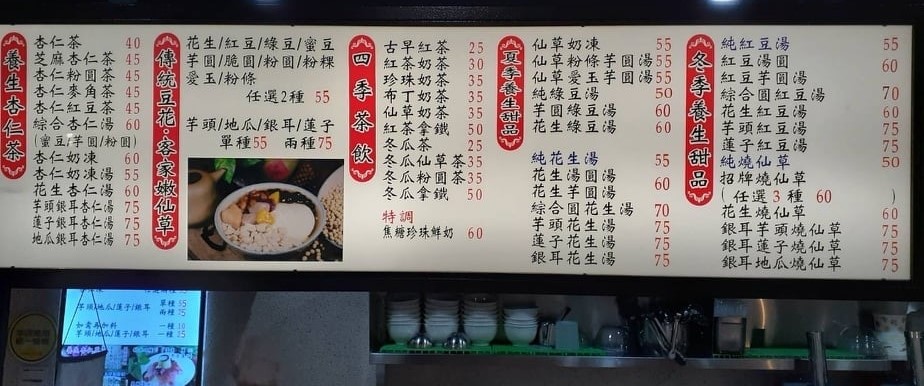 養生杏仁茶
杏仁茶 40
芝麻杏仁茶 45
杏仁粉圓茶 45
杏仁麥角茶 45
杏仁紅豆茶 45
綜合杏仁湯 60
(蜜豆/芋圓/粉圓)
杏仁奶凍 60
杏仁奶凍湯 55
花生杏仁湯 60
芋頭銀耳杏仁湯 75
蓮子銀耳杏仁湯 75
地瓜銀耳杏仁湯 75
傳統豆花·客家嫩仙草
花生/紅豆/綠豆/蜜豆
芋圓/脆圓/粉圓/粉粿
愛玉/粉條
任選2種 55
芋頭/地瓜/銀耳/蓮子
單種55 兩種75
四季茶飲
古早紅茶 25
紅茶奶茶 30
珍珠奶茶 35
布丁奶茶 35
仙草奶茶 35
紅茶拿鐵 50
冬瓜茶 25
冬瓜仙草茶 35
冬瓜粉圓茶 35
冬瓜拿鐵 50
特調
焦糖珍珠鮮奶 60
夏季養生甜品
仙草奶凍 55
仙草粉條芋圓湯 55
仙草愛玉芋圓湯 55
純綠豆湯 50
芋圓綠豆湯 60
花生綠豆湯 60
純花生湯 55
花生湯圓湯
花生芋圓湯 60
綜合圓花生湯 70
芋頭花生湯 75
蓮子花生湯 75
銀耳花生湯 75
冬季養生甜品
純紅豆湯 55
紅豆湯圓 60
紅豆芋圓湯
綜合圓紅豆湯 70
花生紅豆湯 60
芋頭紅豆湯 75
蓮子紅豆湯 75
純燒仙草 50
招牌燒仙草
(任選3種 60)
花生燒仙草 60
銀耳芋頭燒仙草 75
銀耳蓮子燒仙草 75
銀耳地瓜燒仙草 75
芋頭/地瓜/蓮子/銀耳 單種 55
兩種 75
如需再加料 一種 10
芋頭/地瓜/蓮子/銀耳 一種 25